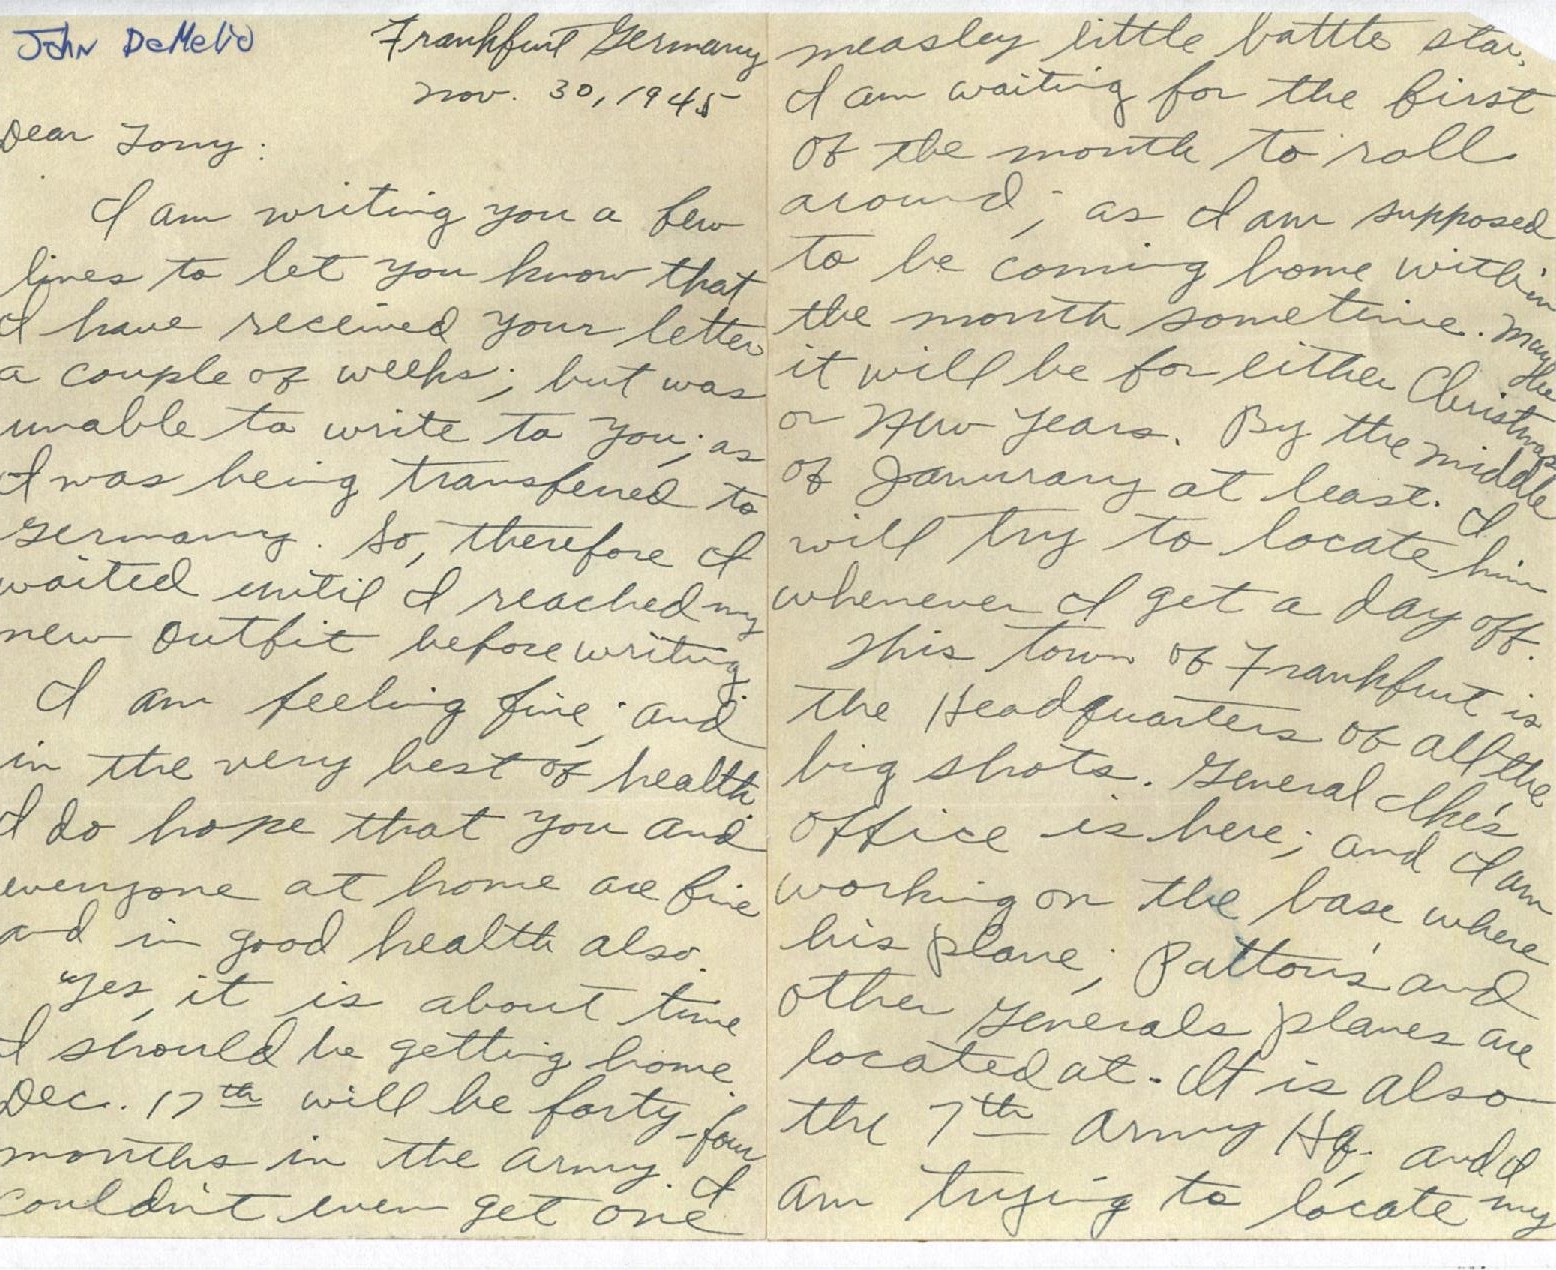 John DeMelio
Frankfurt Germany
Nov. 30, 1945
Dear Tony:
I am writing you a few
lines to let you know that
I have received your letter
a couple of weeks; but was
unable to write to you; as
I was being transfered to
Germany. So, therefore I
waited until I reached my
new outfit before writing
I am feeling fine; and
in the very best of health
I do hope that you and
everyone at home are fine
and in good health also.
Yes, it is about time
I should be getting home
Dec. 17th will be forty-four
months in the army. I
couldn't even get one
measley little battle star.
I am waiting for the first
of the month to roll
around; as I am supposed
to be coming home within
the month sometime. Maybe
it will be for either Christmas
or New Years. By the middle
of Janurary at least. I
will try to locate him
whenever I get a day off.
This town of Frankfurt is
the Headquarters of all the
big shots. General Ike's
office is here; and I am
working on the base where
his plane; Patton's and
other Generals planes are
located at. It is also
the 7th Army Hq; and I
am trying to locate my